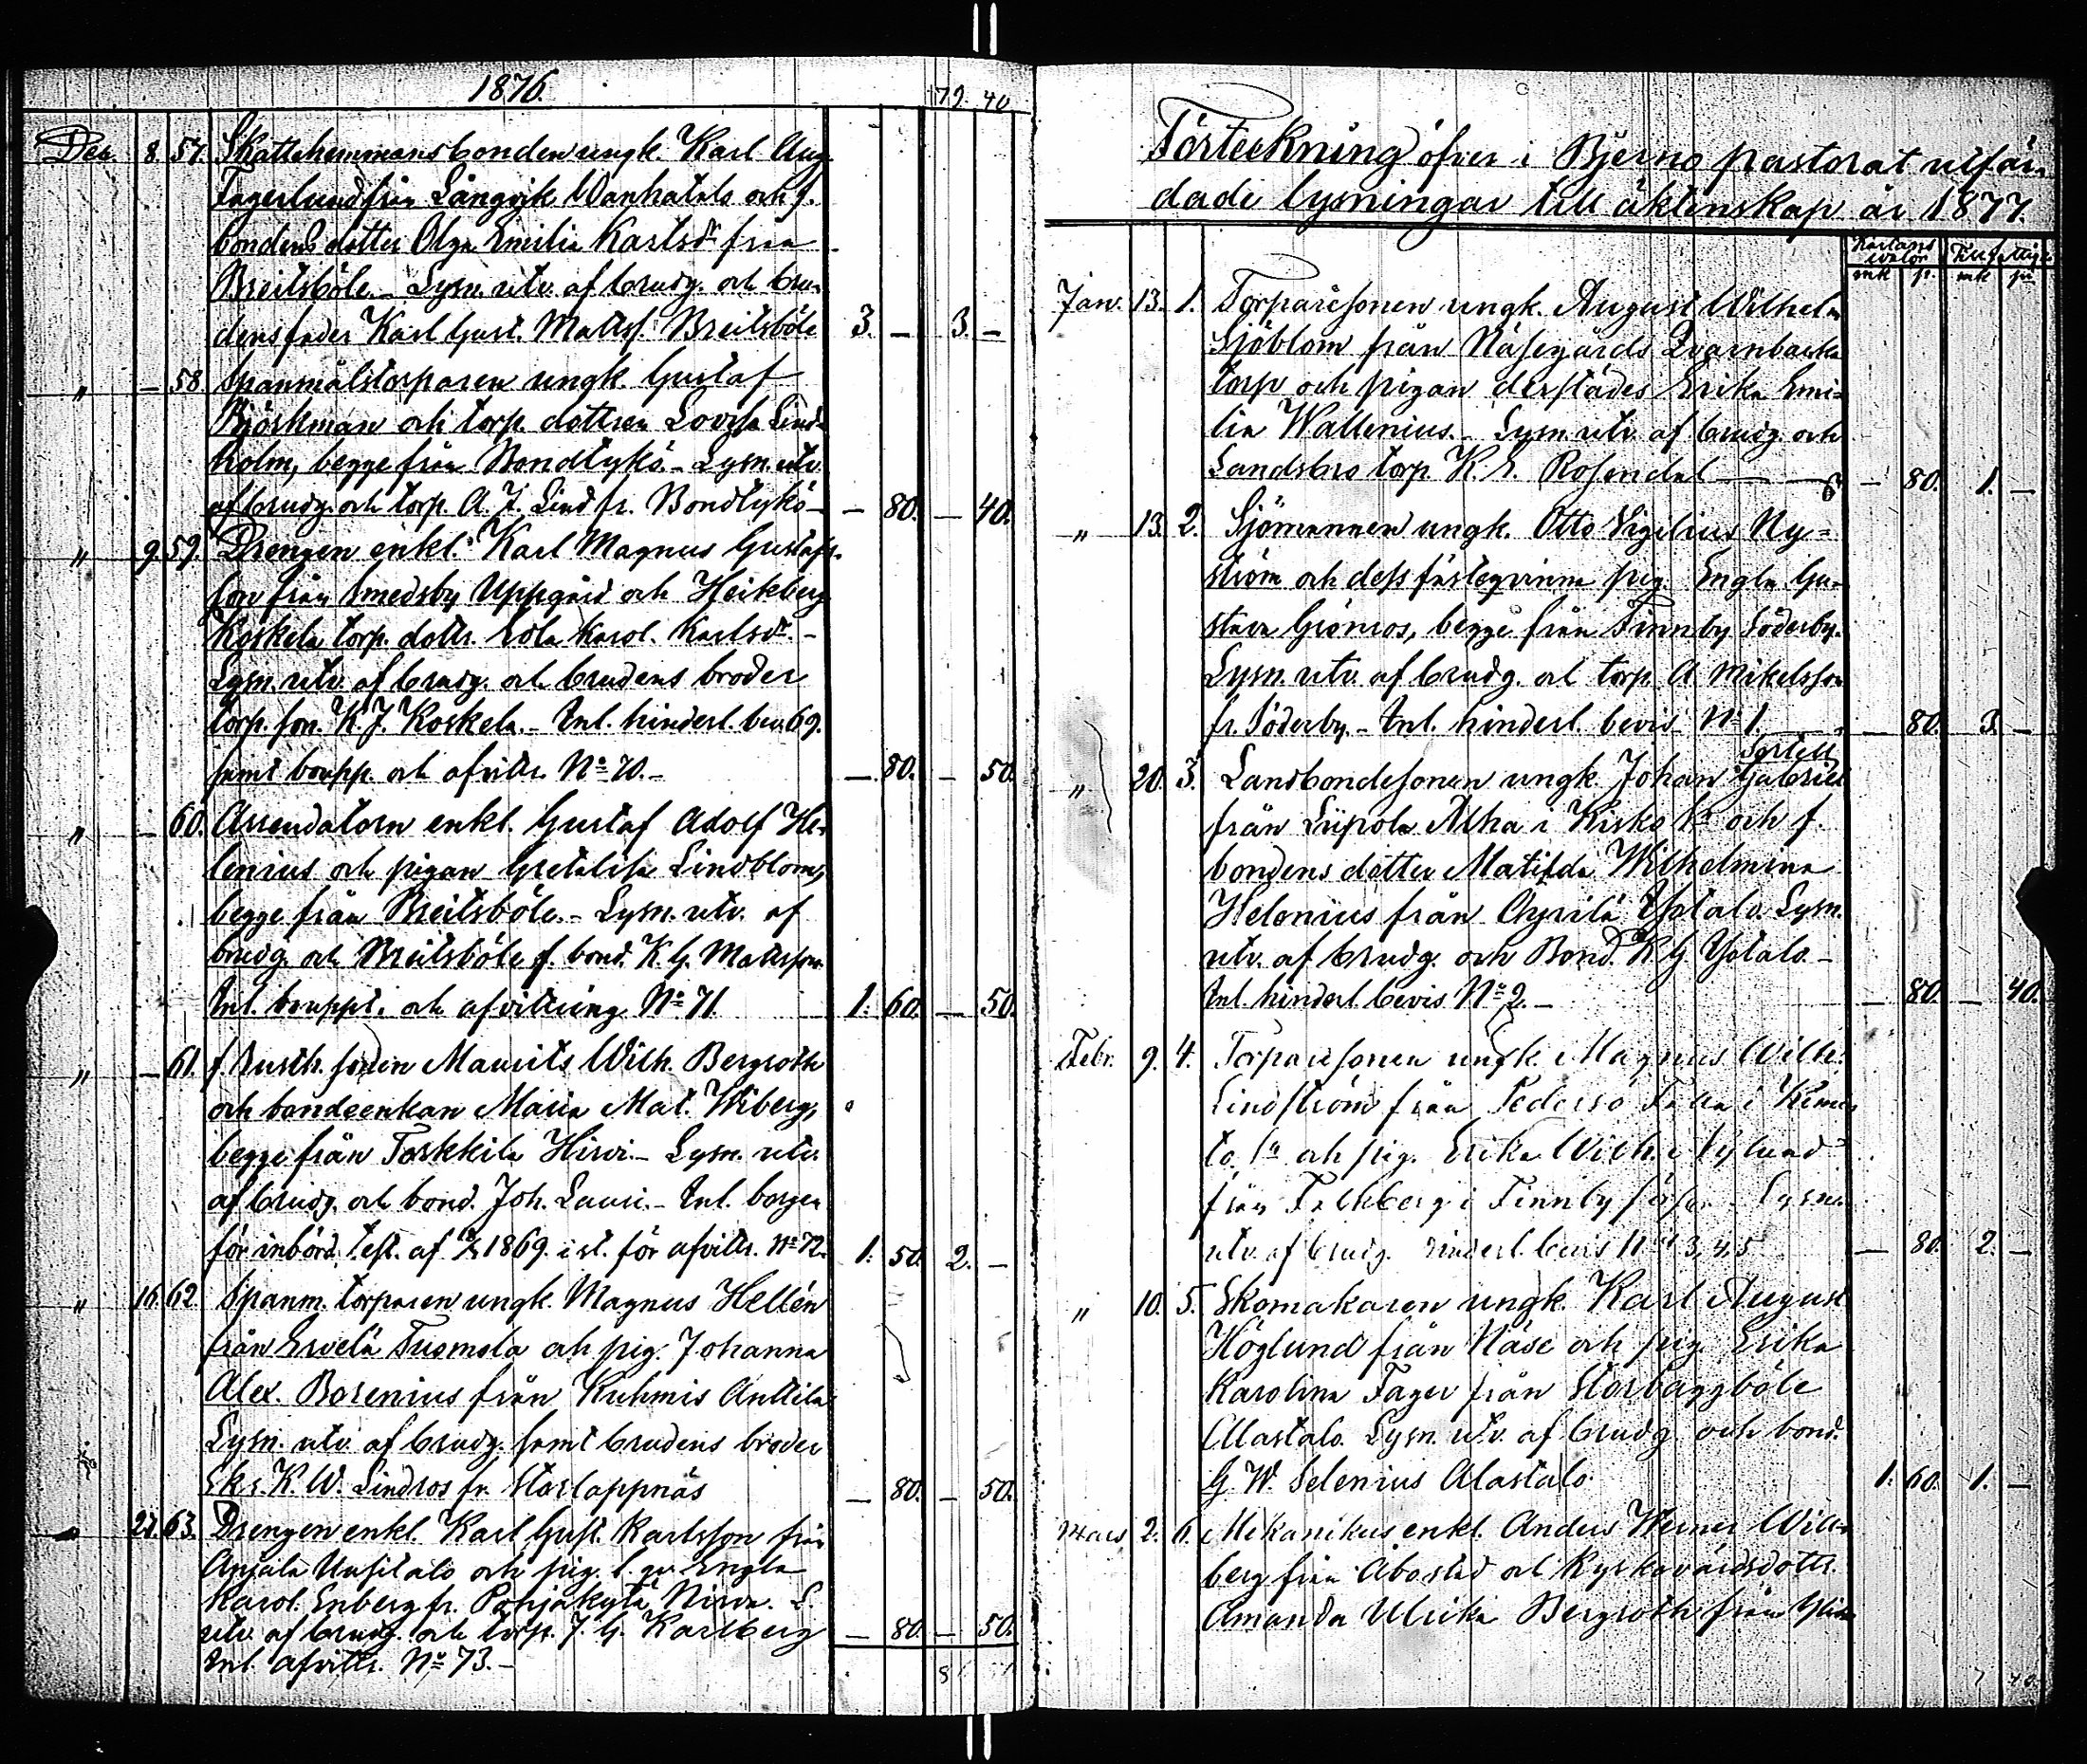 1876.
79. 40
Dec. 8. 57. Skattehemmansbonden ungk. Karl Aug.
Fagerlund från Långvik Wanhatalo och f.
bondens dotter Olga Emilia Karlsdr från
Breitsböle. - Lysn. utv. af brudg. och bru-
dens fader Karl Gust. Mattss. Breitsböle 3. — 3. —
" — 58. Spanmålstorparen ungk. Gustaf
Björkman och torp. dottren Lovisa Lind-
holm, begge från Bondtykö. - Lysn. utv.
af brudg. och torp. A. F. Lind fr. Bondtykö — 80. — 40.
" 9. 59. Drengen enkl. Karl Magnus Gustafs-
son från Smedsby Uppgård och Heikberg
Koskela torp. dottr. Eola Karol. Karlsdr. -
Lysn. utv. af brudg. och brudens broder
torp. son. K. J. Koskela. - Inl. hinderl. bev. 69.
samt boupp. och afvittr. No 70. - — 80. — 50.
" — 60. Arrendatorn enkl. Gustaf Adolf He-
lenius och pigan Gretalisa Lindblom,
begge från Breitsböle. - Lysn. utv. af
brudg. och Breitsböle f. bond. K. G. Mattsson.
Inl. bouppt. och afvittring No 71. 1. 60. — 50.
" — 61. f. Rusth. sonen Maurits Wilh. Bergroth
och bondeenkan Maria Mat. Wiberg,
begge från Toskkila Hirvi. - Lysn. utv.
af brudg. och bond. Joh. Lauri. - Inl. borgen
för inbörd. test. af 1869. i st. för afvittr. No 72. 1. 50. 2. —
" 16. 62. Spanm. torparen ungk. Magnus Hellén
från Ervelä Tuomola och pig. Johanna
Alex. Borenius från Kuhmis Anttila
Lysn. utv. af brudg. samt brudens broder
Skr. K. W. Lindros fr. Storlappnäs — 80. — 50.
27. 63. Drengen enkl. Karl Gust. Karlsson från
Anjala Uusitalo och pig. l. qv. Engla
Karol. Enberg fr. Pohjakylä Nirva. L.
utv. af brudg. och torp. J. G. Karlberg — 80. — 50.
Inl. afvittr. No 73. -
Förteckning öfver i Bjerno pastorat utfär-
dade lysningar till äktenskap år 1877.
mk p. mk pi
Jan. 13. 1. Torparesonen ungk. August Wilhelm
Sjöblom från Näsegårds Qvarnbacka
torp och pigan derstädes Erika Emi-
lia Wallenius. - Lysn. utv. af brudg. och
Landsbro torp. K. E. Rosendal — — 80. 1. —
" 13. 2. Sjömannen ungk. Otto Vigilius Ny-
ström och dess fästeqvinna pig. Engla Gu-
stava Grönros, begge från Finnby Söderby.
Lysn. utv. af brudg. och torp. A. Mikelsson
fr. Söderby. - Inl. hinderl. bevis No 1. — 80. 3. —
Sortell
" 20. 3. Landbondesonen ungk. Johan Gabriel
från Liipola Alha i Kisko sn och f.
bondens dotter Matilda Wilhelmina
Helenius från Chyrilä Ystalo. Lysn.
utv. af brudg. och Bond. K G Ystalo. -
Inl. hinderl. bevis No 2. - — 80. — 40.
Febr. 9. 4. Torparesonen ungk. Magnus Wilh.
Lindström från Pedersö Falla i Kimi-
to sn och pig. Erika Wilh. Nylund
från Falkberg i Finnby - Lysn.
utv. af brudg. hinderl. bevis No 3, 4, 5 — 80. 2. —
" 10. 5. Skomakaren ungk. Karl August
Höglund från Näse och pig. Erika
Karolina Fager från Storbäggböle
Alastalo. Lysn. utv. af brudg. och bond.
G. W. Selenius Alastalo. 1. 60. 1. —
Mars 2. 6. Mekanikus enkl. Anders Werner Will-
berg från Åbo stad och Kyrkovärdsdottr.
Amanda Ulrika Bergroth från